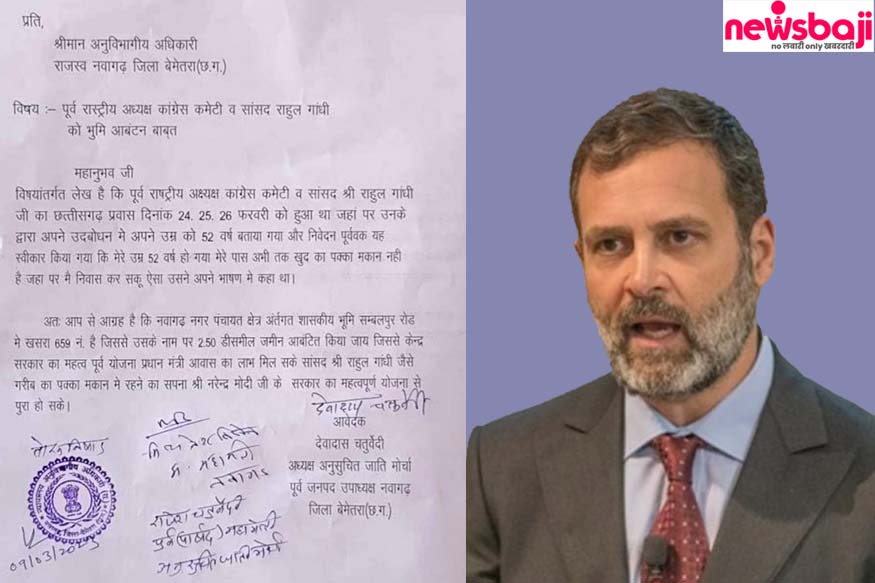 newsbaji
no लबारी only खबरदारी
प्रति,
श्रीमान अनुविभागीय अधिकारी
राजस्व नवागढ़ जिला बेमेतरा(छ.ग.)
विषय :– पूर्व रास्ट्रीय अध्यक्ष कांग्रेस कमेटी व सांसद राहुल गांधी
को भुमि आबंटन बाबत
महानुभव जी
विषयांतर्गत लेख है कि पूर्व राषट्रीय अक्ष्यक्ष कांग्रेस कमेटी व सांसद श्री राहुल गांधी
जी का छत्तीसगढ़ प्रवास दिनांक 24. 25. 26 फरवरी को हुआ था जहां पर उनके
द्वारा अपने उदबोधन मे अपने उम्र को 52 वर्ष बताया गया और निवेदन पूर्ववक यह
स्वीकार किया गया कि मेरे उम्र 52 वर्ष हो गया मेरे पास अभी तक खुद का पक्का मकान नही
है जहा पर मै निवास कर सकू ऐसा उसने अपने भाषण मे कहा था।
अतः आप से आग्रह है कि नवागढ़ नगर पंचायत क्षेत्र अंर्तगत शासकीय भूमि सम्बलपुर रोड
मे खसरा 659 नं. है जिससे उसके नाम पर 2.50 डीसमील जमीन आबंटित किया जाय जिससे केन्द्र
सरकार का महत्व पूर्ण योजना प्रधान मंत्री आवास का लाभ मिल सके सांसद श्री राहुल गांधी जैसे
गरीब का पक्का मकान मे रहने का सपना श्री नरेन्द्र मोदी जी के सरकार का महत्वपूर्ण योजना से
पुरा हो सके।
देवादास चतुर्वेदी
आवेदक
देवादास चतुर्वेदी
अध्यक्ष अनुसुचित जाति मोर्चा
पूर्व जनपद उपाध्यक्ष नवागढ़
जिला बेमेतरा(छ.ग.)
नवागढ
महामंत्री
09/03/2023